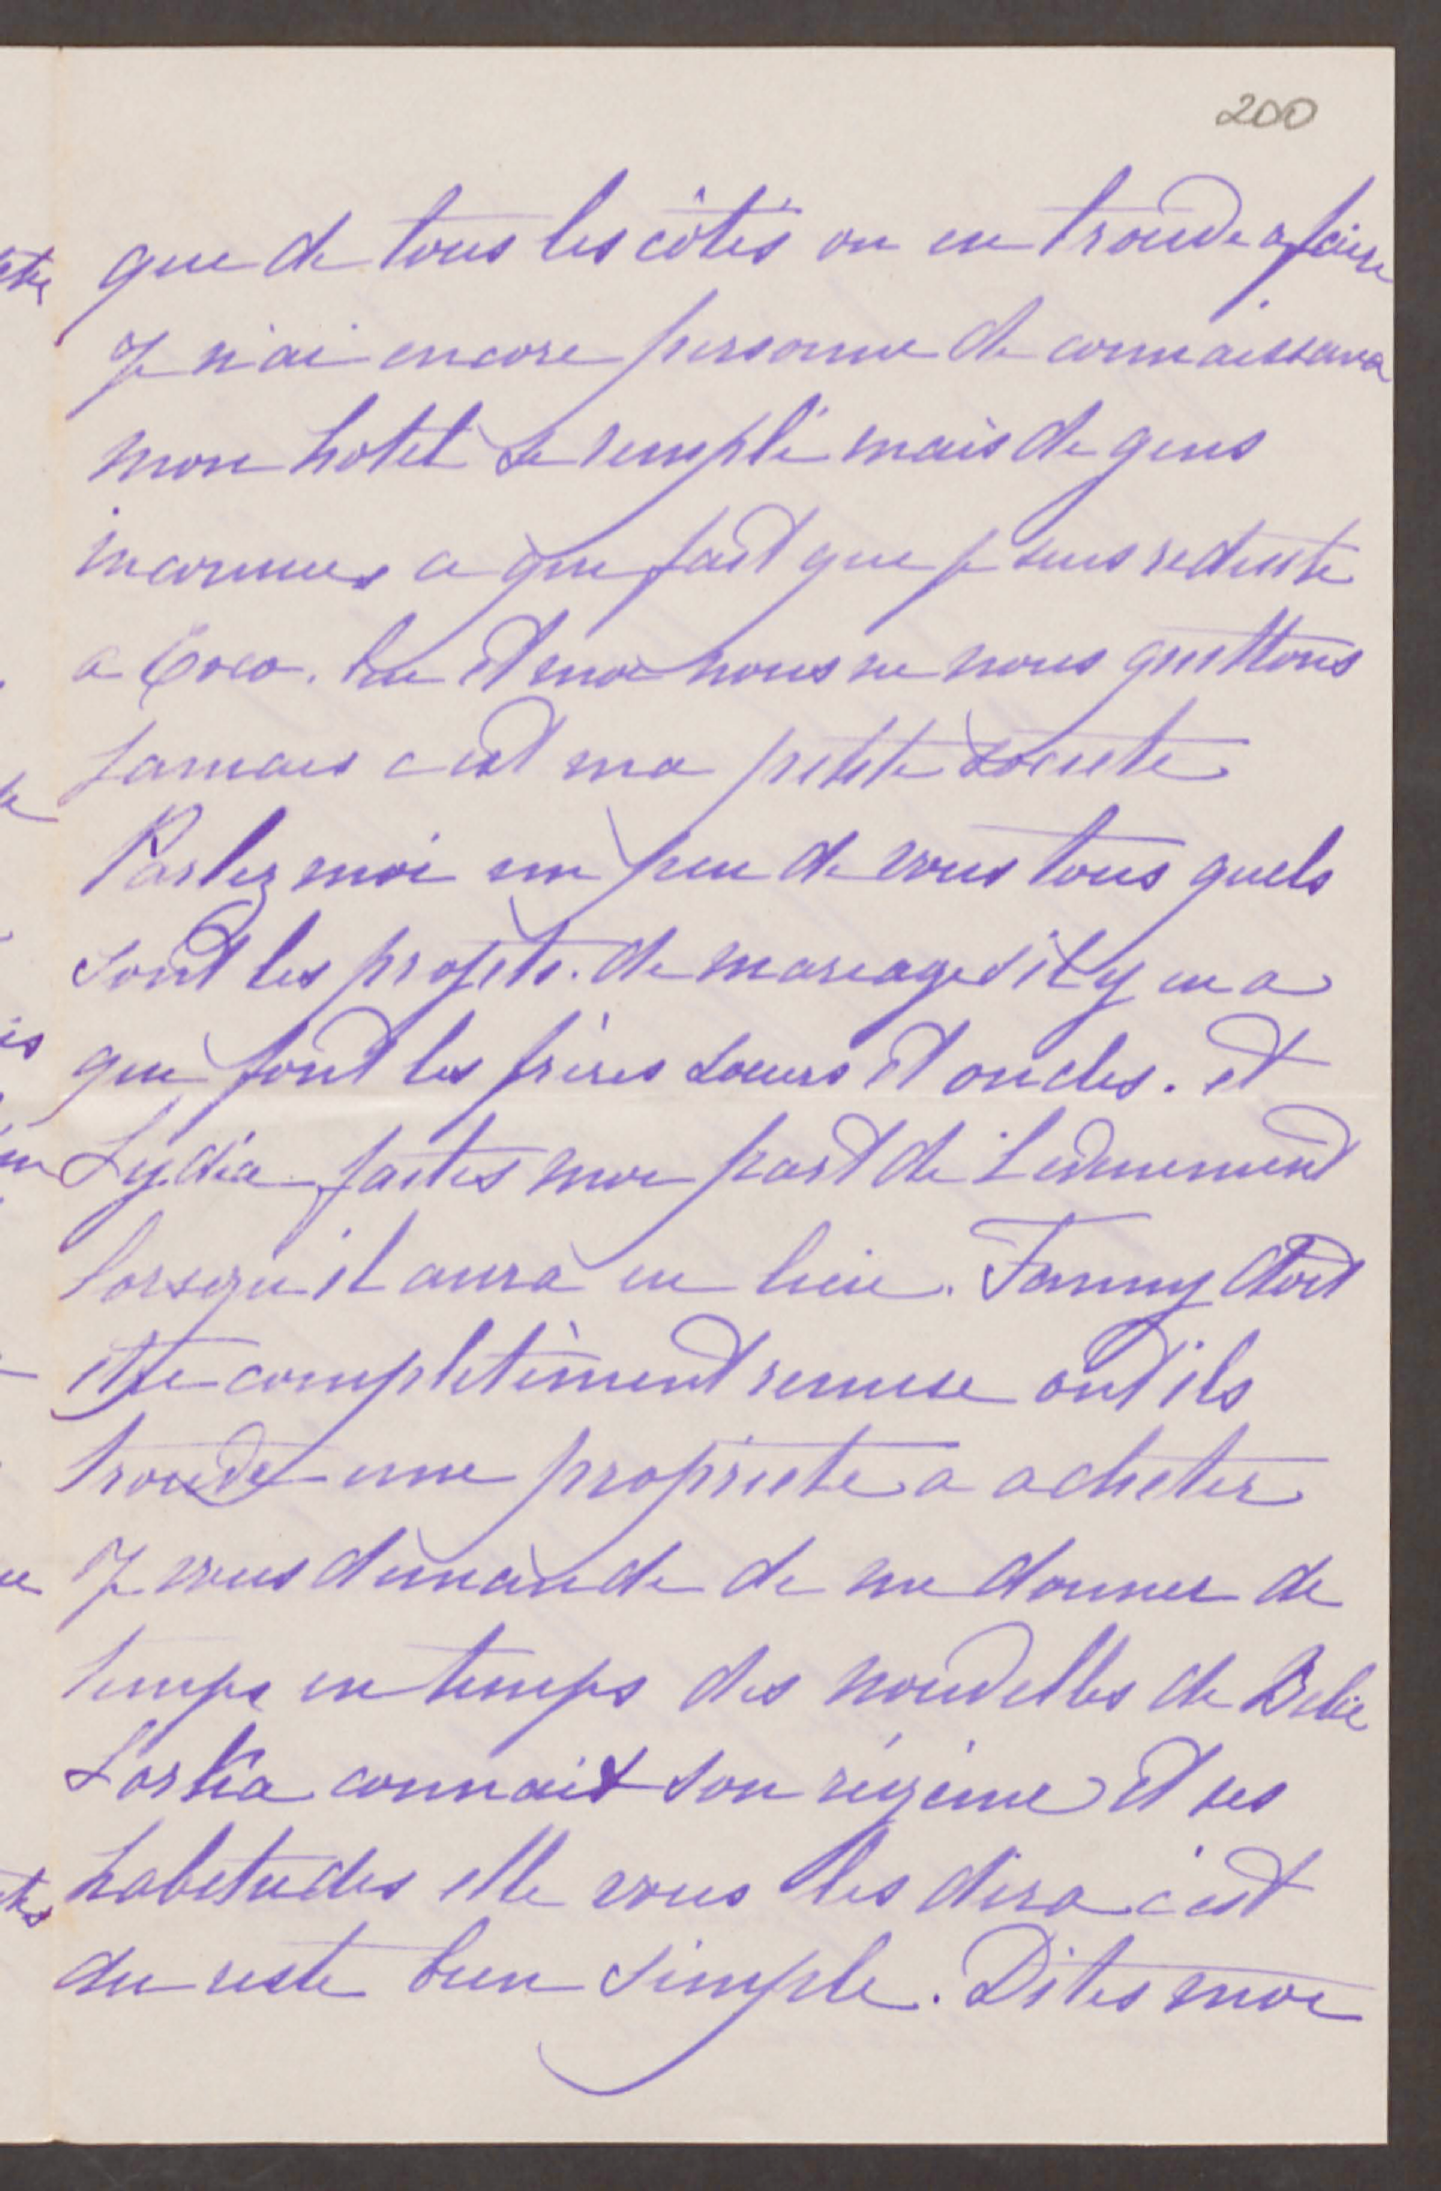 200
que de tous les côtés on en trouve a faire
Je n'ai encore personne de connaissance
mon hotel se rempli mais de gens
inconnues ce qui fait que je suis reduite
a Coco. Lui et moi nous ne nous quittons
jamais c'est ma petite societe
Parlez moi un peu de vous tous quels
sont les projets de mariages il y en a
que font les frères soeurs et oncles. et
Lydia faites moi part de l'evenement
lorsqu'il aura eu lieu. Fanny doit
être complètement remise ont ils
trouvé une propriete a acheter
Je vous demande de me donner de
temps en temps des nouvelles de Bebé
connait son régime et ses
habitudes elle vous les dira c'est
du reste bien simple. Dites moi